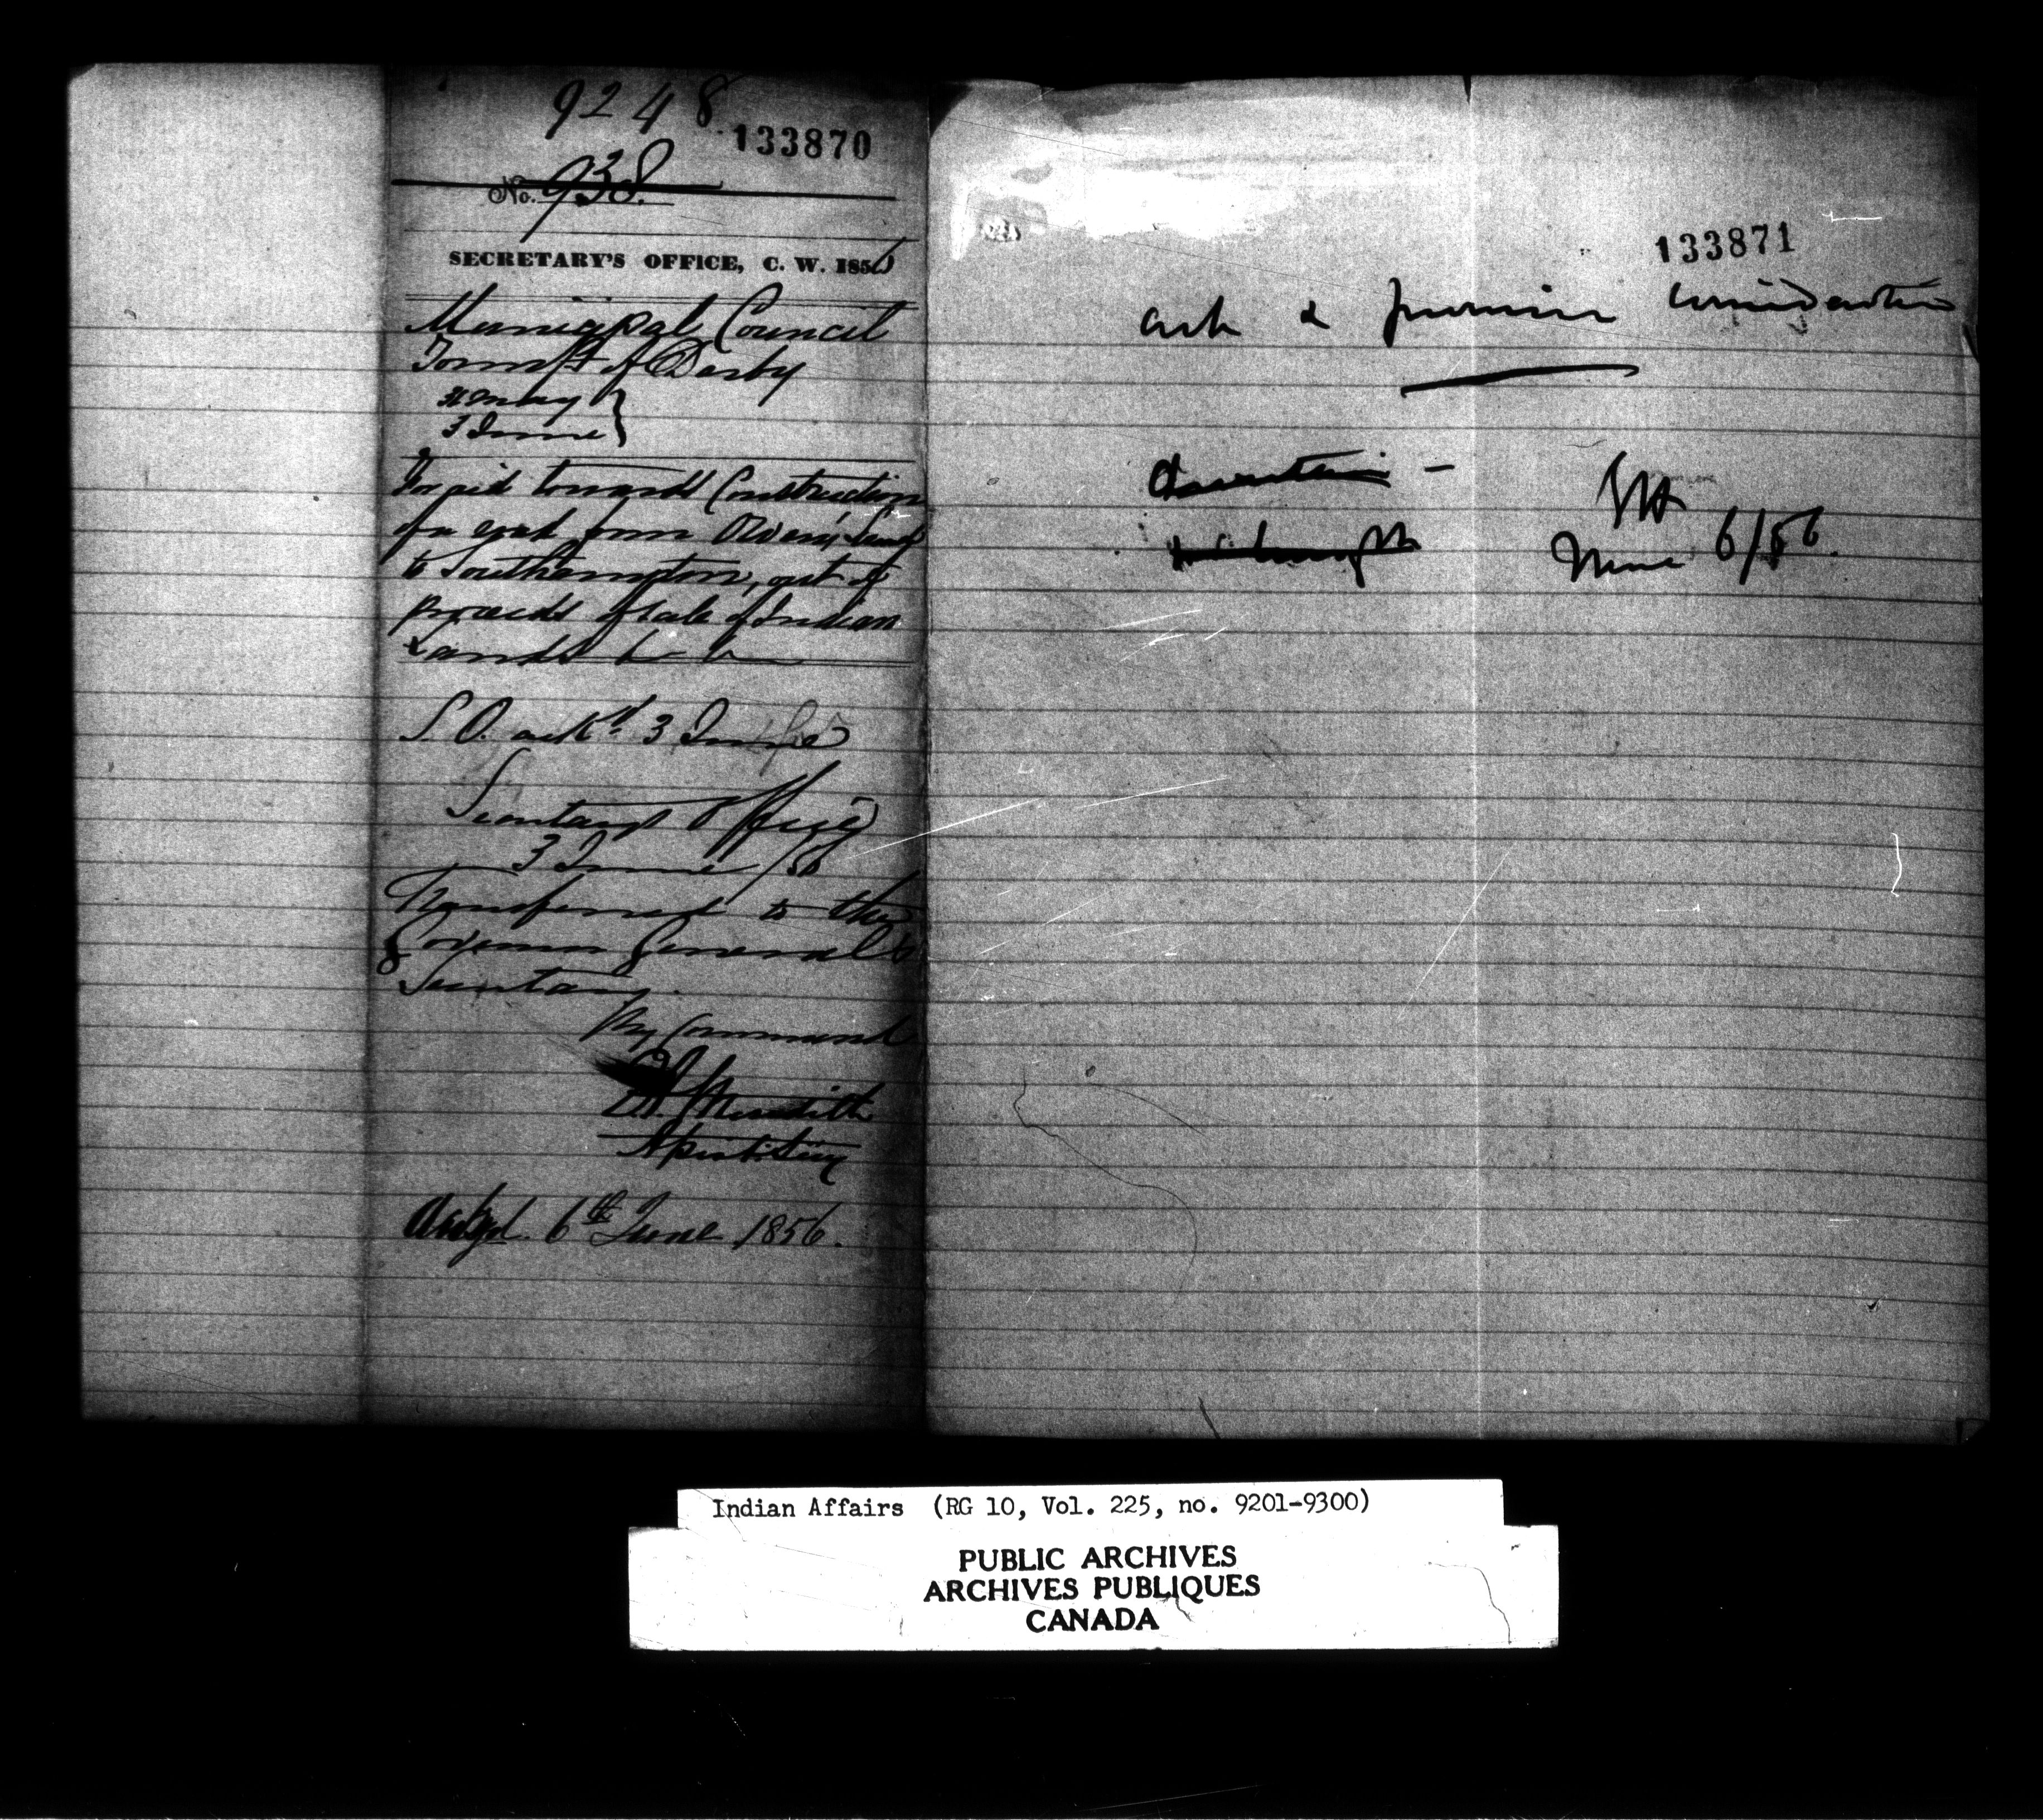 9248
133870
No. 938.
SECRETARY'S OFFICE, C. W. 1856
Municipal Council
Townsp of Derby
31 May
3 June
For aid towards Construction
of a road from Owen's Sound
to Southampton, out of
proceeds of sale of Indian
Lands
S. O. ackd 3 June
Secretary's Office
3 June /56
Transferred to the
Governor General's
Secretary.
By Command
E. A. Meredith
Asst Secy
Ackgd. 6th June 1856.
133871
Ack & promise consideration
June 6/56.
Indian Affairs (RG 10, Vol. 225, no. 9201-9300)
PUBLIC ARCHIVES
ARCHIVES PUBLIQUES
CANADA